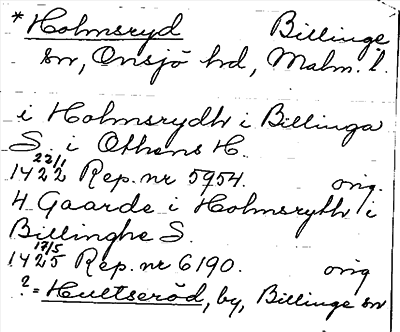 *Holmsryd Billinge
sn, Onsjö hd, Malm. l.
i Holmsrydh i Billinga
S. i Othens H.
22/1
1422 Rep. nr 5954. orig.
4 Gaarde i Holmsryth i
Billinghe S.
17/5
1425 Rep. nr 6190. orig
? = Hultseröd, by, Billinge sn